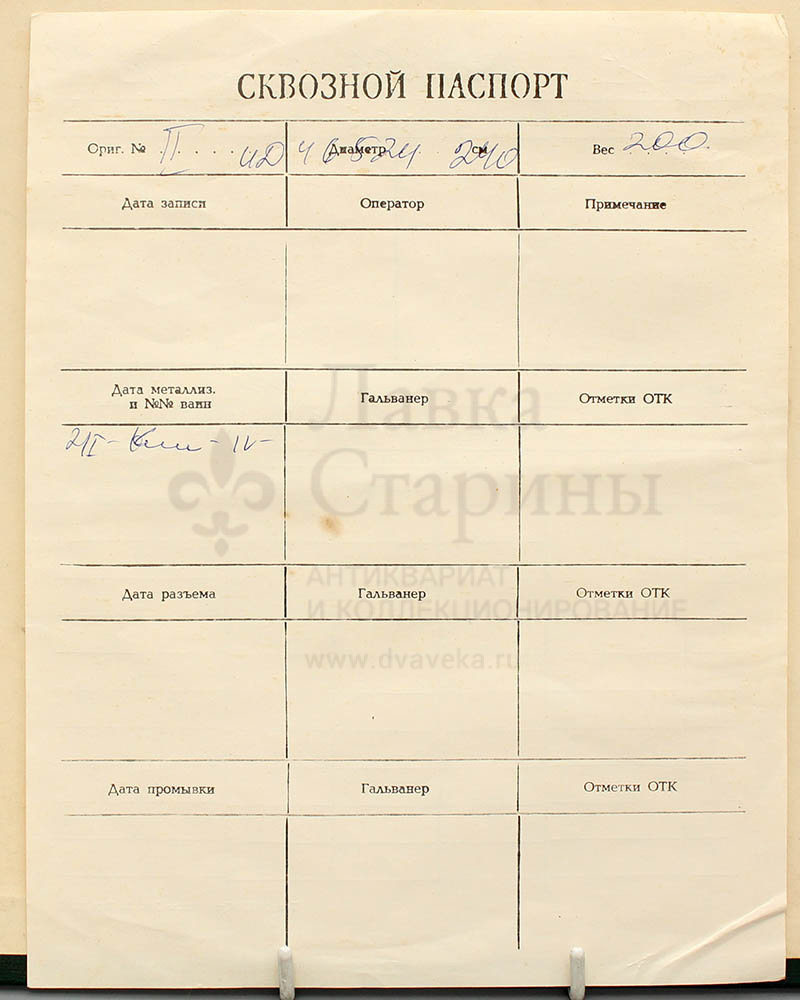 СКВОЗНОЙ ПАСПОРТ
Ориг. № II Диаметр см Вес 200
Дата записи Оператор Примечание
Дата металлиз. и №№ ванн Гальванер Отметки ОТК
Лавка
Старины
АНТИКВАРИАТ
И КОЛЛЕКЦИОНИРОВАНИЕ
www.dvaveka.ru
Дата разъема Гальванер Отметки ОТК
Дата промывки Гальванер Отметки ОТК